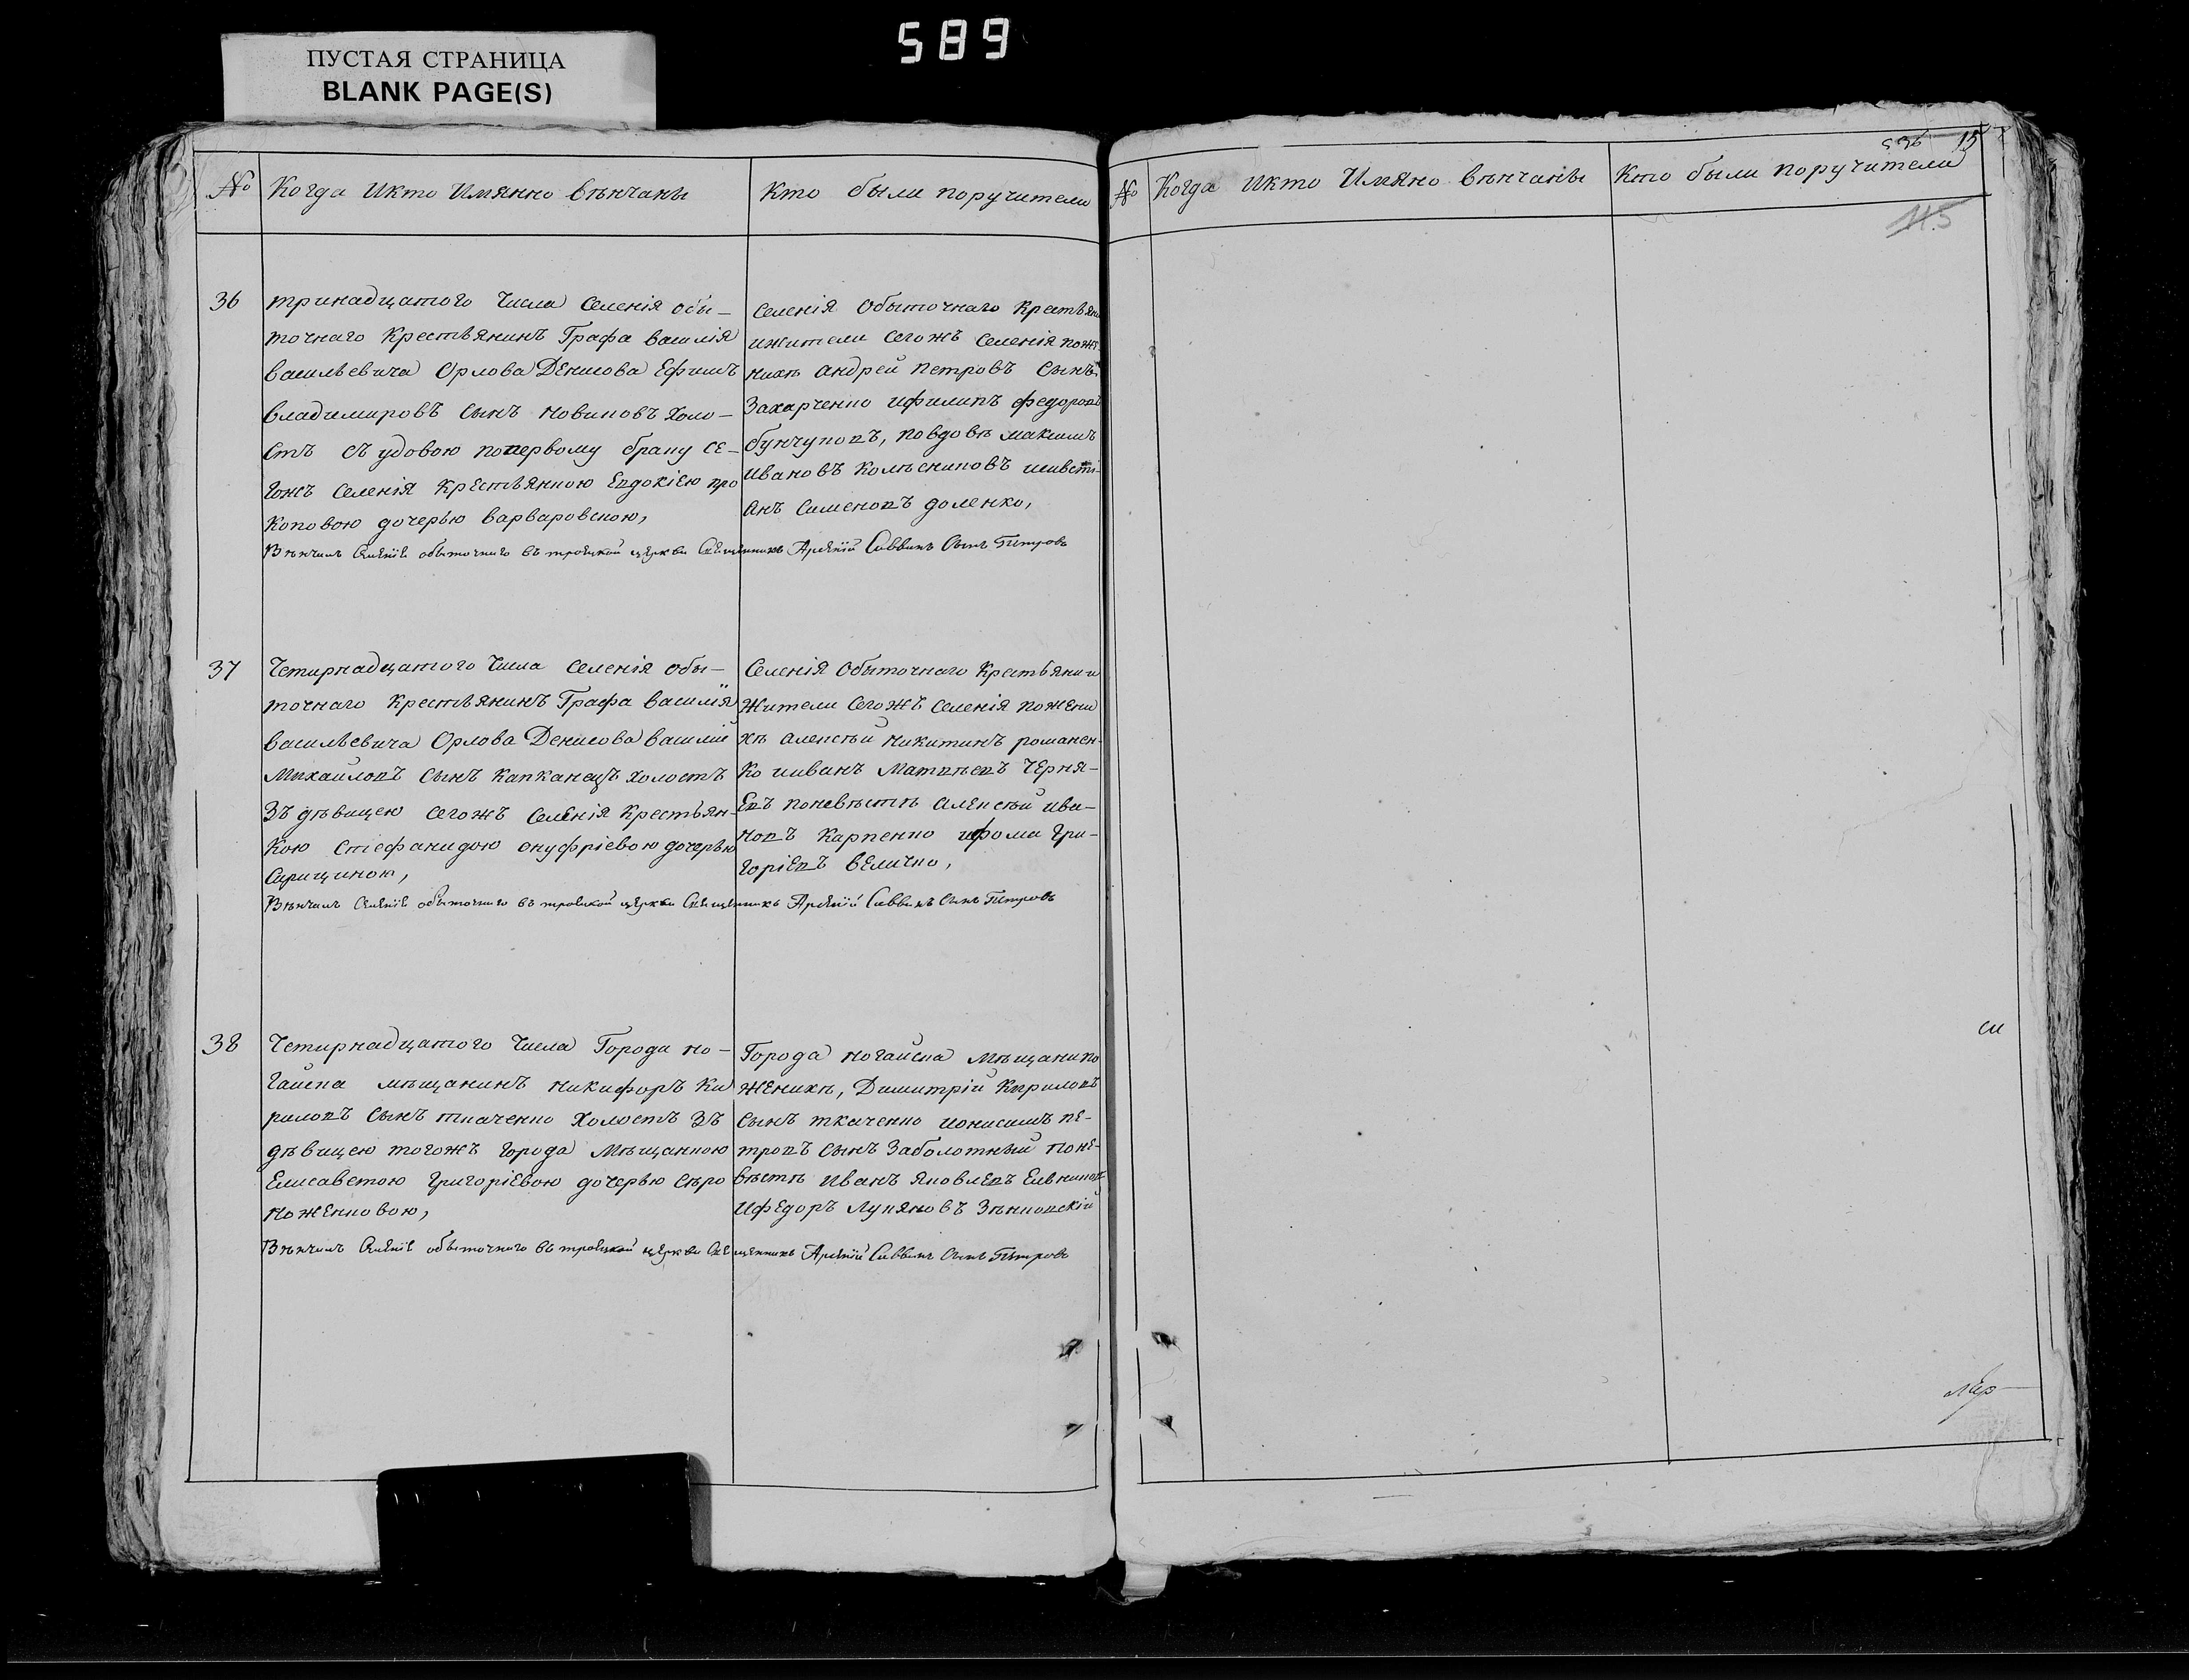 589
ПУСТАЯ СТРАНИЦА
BLANK PAGE(S)
№ Когда Икто Имянно вѣнчаны
Кто были поручители
36
тринадцатого Числа Селенія обы-
точнаго Крестьянинъ Графа василія
васильевича Орлова Денисова Ефимъ
владимировъ сынъ Новиковъ Холо-
стъ съ удовою попервому браку се-
гожъ селенія Крестьянкою Евдокіею про
коповою дочерью варваровскою,
селенія Обыточнаго Крестьяни
ижители сегожъ селенія поже
нихѣ андрей петровъ сынъ
Захарченко ифилипъ федоровъ
бунчуковъ, повдовѣ максимъ
ивановъ Колѣсниковъ
анъ Семеновъ доленко,
Вѣнчалъ Селеніе обыточного въ троецкой церкви Священникъ Арсеній Саввинъ Сынъ Петровъ
37
Четирнадцатого Числа селенія обы-
точнаго крестьянинъ Графа василія
васильевича Орлова Денисова василій
Михайловъ сынъ Капканецъ холостъ
Зъ дѣвицею сегожъ селенія Крестьян-
кою Стефанидою онуфріевою дочерью
Сирициною,
Селенія Обыточнаго Крестьяни и
Жители сегожъ селенія пожени
хѣ алексѣй никитинъ романен-
ко ииванъ Матвѣевъ Черня-
евъ поневѣстѣ алексѣй ива-
новъ Карпенко ифома Гри-
горіевъ величко,
Вѣнчалъ Селеніе обыточного въ троецкой церкви Священникъ Арсеній Саввинъ Сынъ Петровъ
38
Четирнадцатого Числа Города но-
гайска мѣщанинъ никифоръ Ки
риловъ сынъ ткаченко Холостъ Зъ
дѣвицею тогожъ города Мѣщанкою
Елисаветою Григоріевою дочерью Сѣро
коженковою,
Города ногайска Мѣщани по
женихѣ, Димитрій Кириловъ
сынъ ткаченко ионисимъ пе-
тровъ сынъ Заболотный поне-
вѣстѣ Иванъ Яковлевъ
ифедоръ Лукяновъ Зѣнковскій
Вѣнчалъ Селеніе обыточного въ троецкой церкви Священникъ Арсеній Саввинъ Сынъ Петровъ
15
№ Когда Икто Имяно вѣнчаны
Кто были поручители
115
си